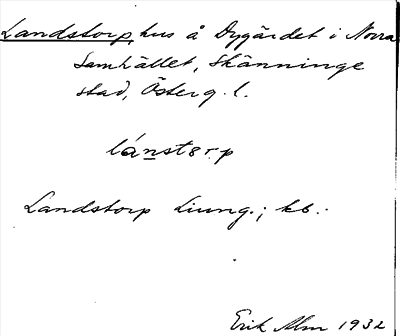 Landstorp, hus å Dygärdet i Norra
Samhället, Skänninge
stad, Österg. l.
lánstɜr.p
Landstorp Ljung.; kb.
Erik Alm 1932